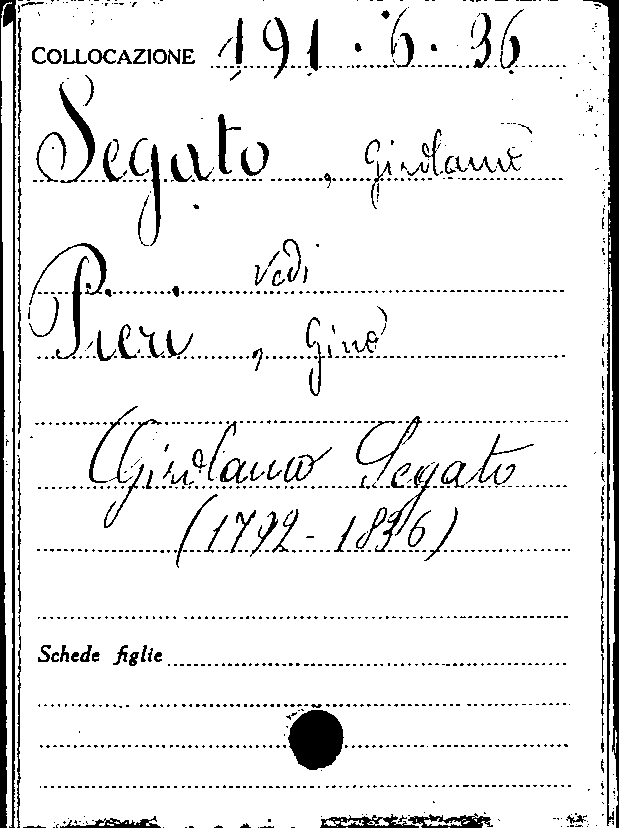 COLLOCAZIONE 191.6.36
Segato, Girolamo
Vedi
Pieri, Gino
Girolamo Segato
(1792-1836)
Schede figlie